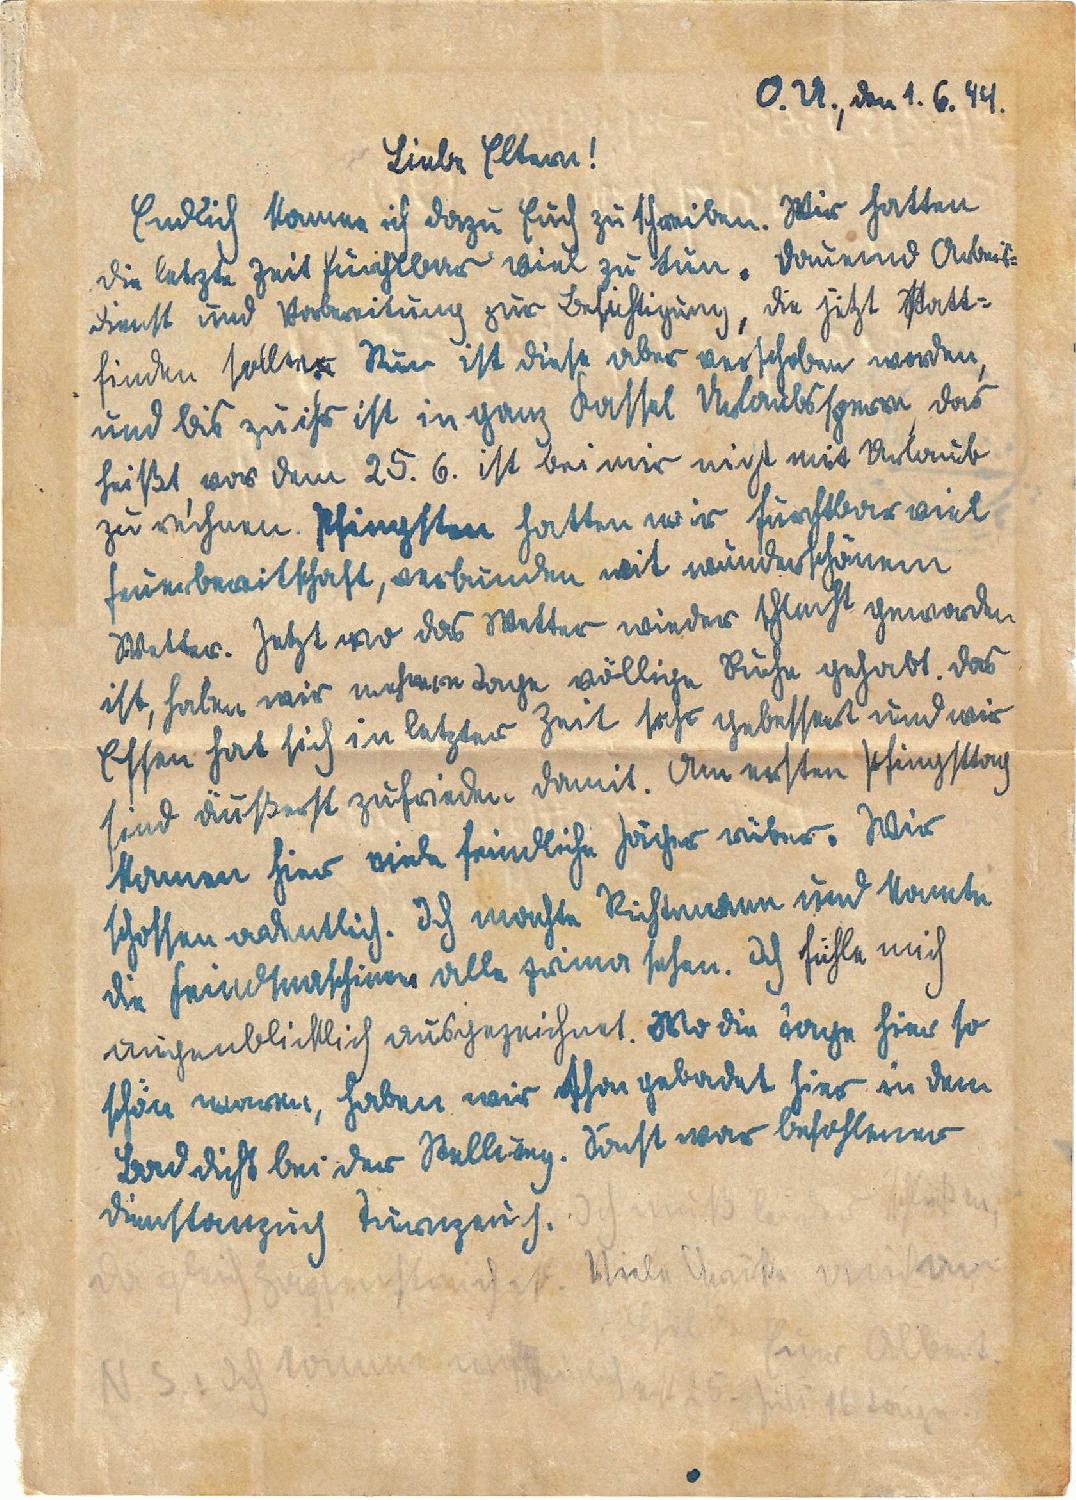 O.U., den 1. 6. 44.
Liebe Eltern!
Endlich komme ich dazu Euch zu schreiben. Wir hatten
die letzte Zeit furchtbar viel zu tun. Dauernd Arbeits=
dienst und Vorbereitung zur Besichtigung, die jetzt statt=
finden sollte. Nun ist diese aber verschoben worden,
und bis zu ihr ist in ganz Kassel Urlaubssperre, das
heißt, vor dem 25. 6. ist bei mir nicht mit Urlaub
zu rechnen. Pfingsten hatten wir furchtbar viel
Feuerbereitschaft, verbunden mit wunderschönem
Wetter. Jetzt wo das Wetter wieder schlecht geworden
ist, haben wir mehrere Tage völlige Ruhe gehabt. Das
Essen hat sich in letzter Zeit sehr gebessert und wir
sind äußerst zufrieden damit. Am ersten Pfingsttag
kamen hier viele feindliche Jäger rüber. Wir
schossen ordentlich. Ich machte Richtmann und konnte
die Feindmaschinen alle prima sehen. Ich fühle mich
augenblicklich ausgezeichnet. Wo die Tage hier so
schön waren, haben wir schon gebadet hier in dem
Bad dicht bei der Stellung. Sonst war befohlener
Dienstanzug Turnzeug. Ich muß leider schließen,
da gleich Zapfenstreich ist. Viele Grüße auch an
Euer Albert.
N.S.: Ich komme erst 25. 16 Tage.